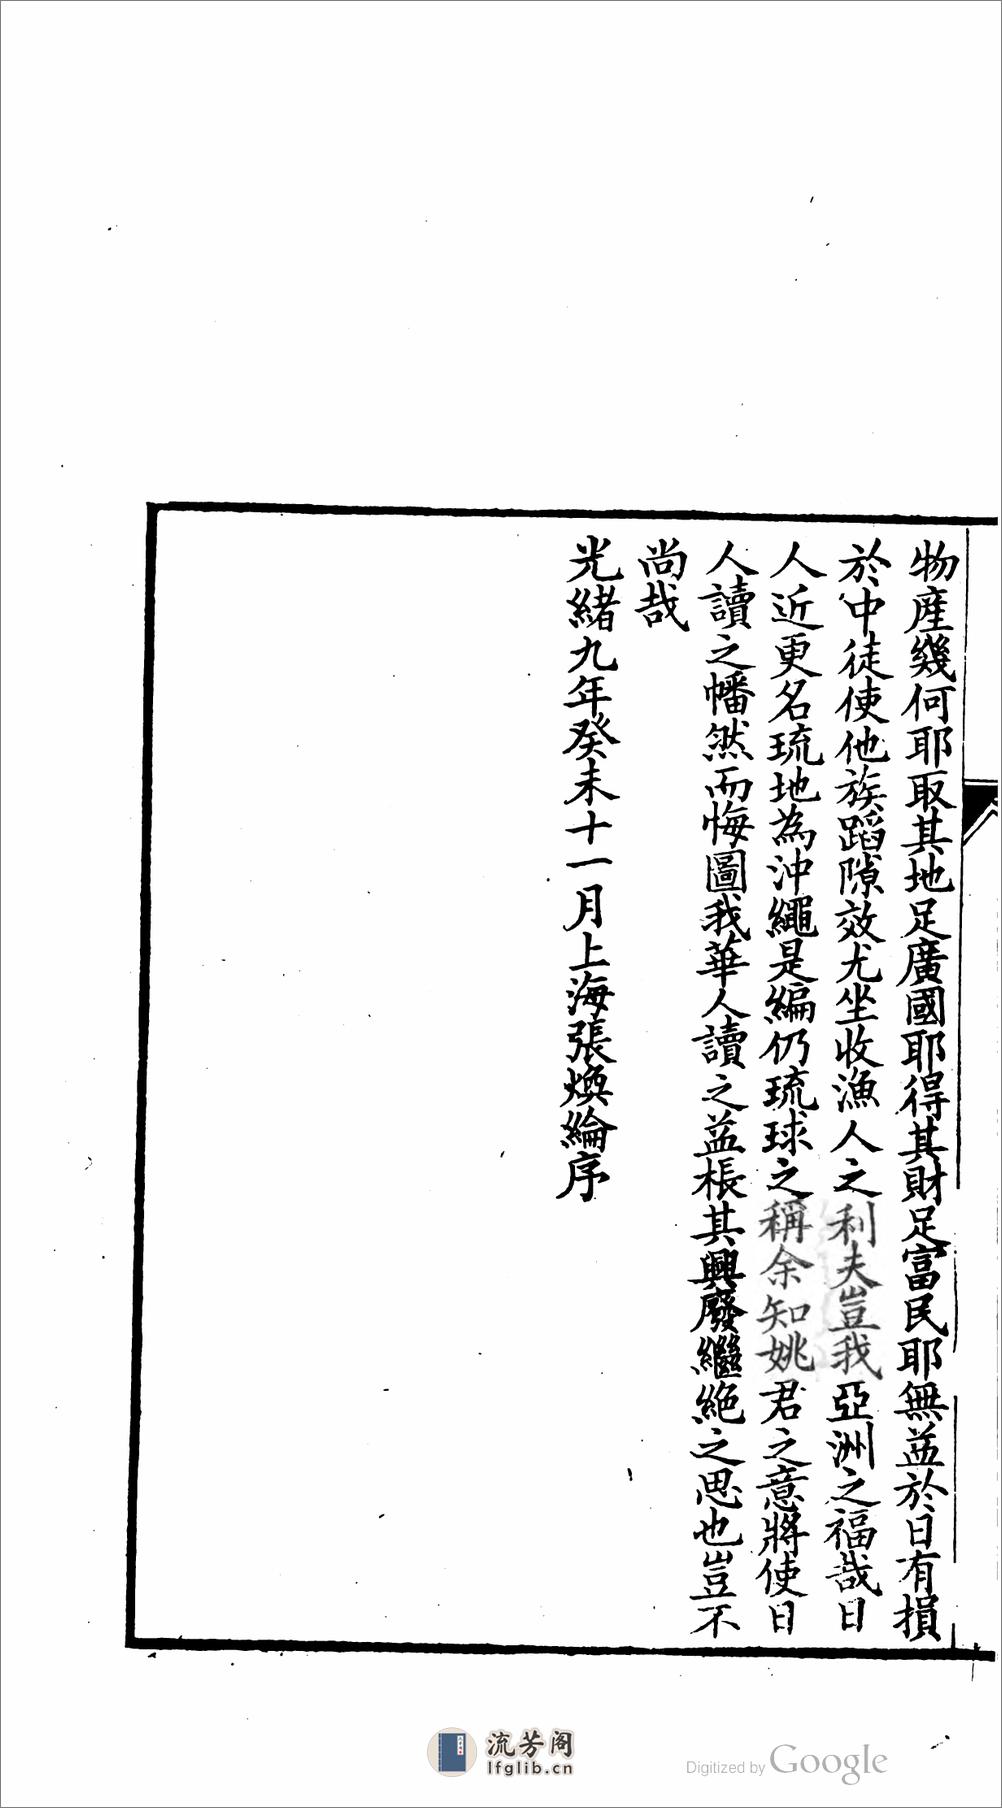 物產幾何耶取其地足廣國耶得其財足富民耶無益於日有損
於中徒使他族蹈隙效尤坐收漁人之利夫豈我亞洲之福哉日
人近更名琉地為沖繩是編仍琉球之稱余知姚君之意將使日
人讀之幡然而悔圖我華人讀之益悵其興廢繼絶之思也豈不
尚哉
光緒九年癸未十一月上海張煥綸序
流芳阁
lfglib.cn
Digitized by Google